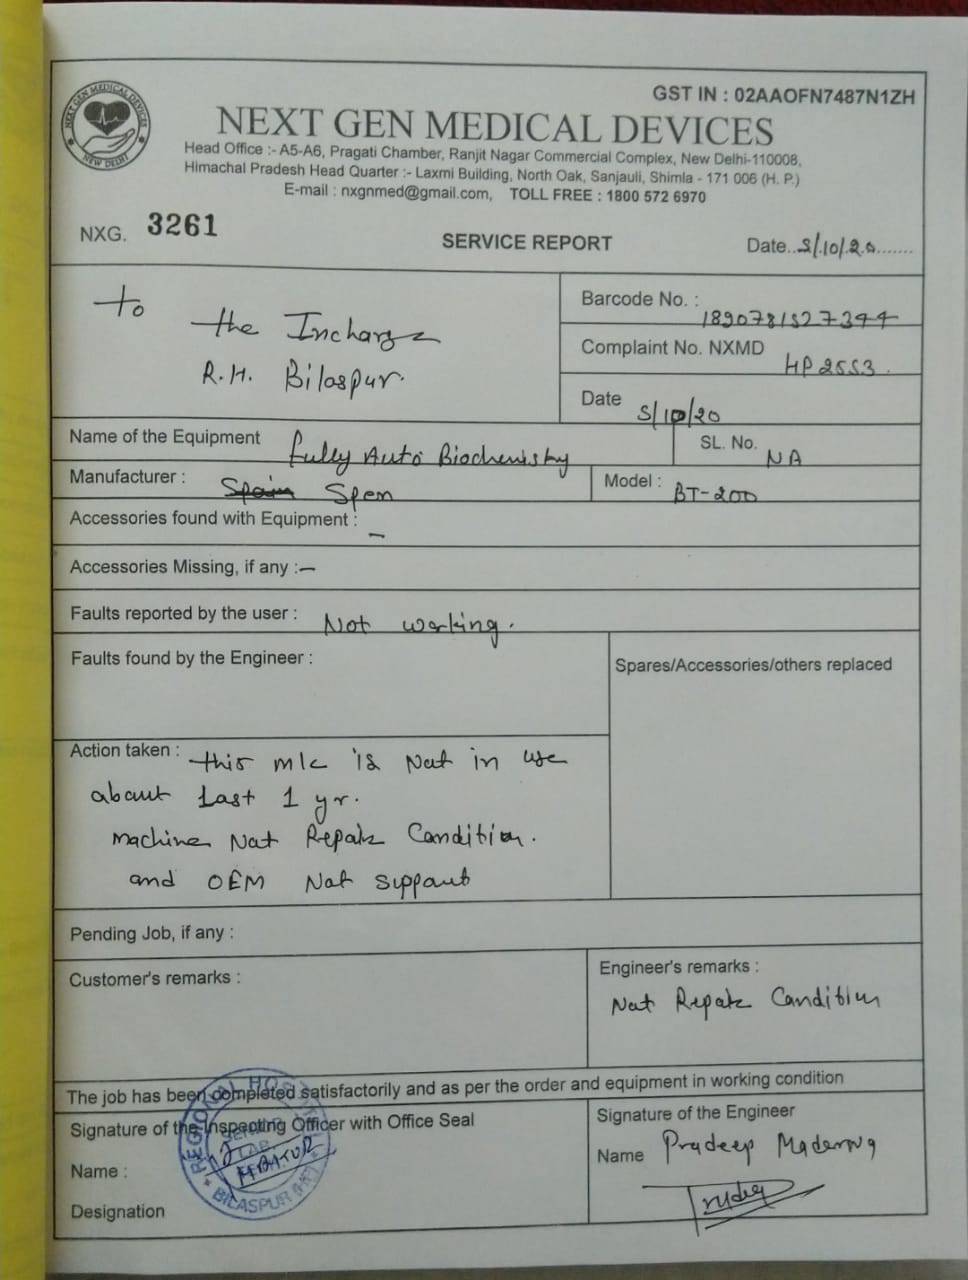 NEXT GEN MEDICAL DEVICES
NEW DELHI
GST IN : 02AAOFN7487N1ZH
NEXT GEN MEDICAL DEVICES
Head Office :- A5-A6, Pragati Chamber, Ranjit Nagar Commercial Complex, New Delhi-110008,
Himachal Pradesh Head Quarter :- Laxmi Building, North Oak, Sanjauli, Shimla - 171 006 (H. P.)
E-mail : nxgnmed@gmail.com, TOLL FREE : 1800 572 6970
NXG. 3261
SERVICE REPORT
Date..5/10/20.......
To
the Incharge
R.H. Bilaspur.
Barcode No. :
1890781527344
Complaint No. NXMD
HP2553.
Date 5/10/20
Name of the Equipment fully Auto Biochemistry
SL. No. NA
Manufacturer : Spen
Model : BT-200
Accessories found with Equipment : –
Accessories Missing, if any :–
Faults reported by the user : Not working.
Faults found by the Engineer :
Spares/Accessories/others replaced
Action taken : this m/c is Not in use
about Last 1 yr.
Machine Not Repair Condition.
and OEM Not Suppout
Pending Job, if any :
Customer's remarks :
Engineer's remarks :
Not Repair Condition
The job has been completed satisfactorily and as per the order and equipment in working condition
Signature of the Inspecting Officer with Office Seal
Name :
Designation
REGIONAL HOSPITAL
LAB
BILASPUR (HP)
Signature of the Engineer
Name Pradeep